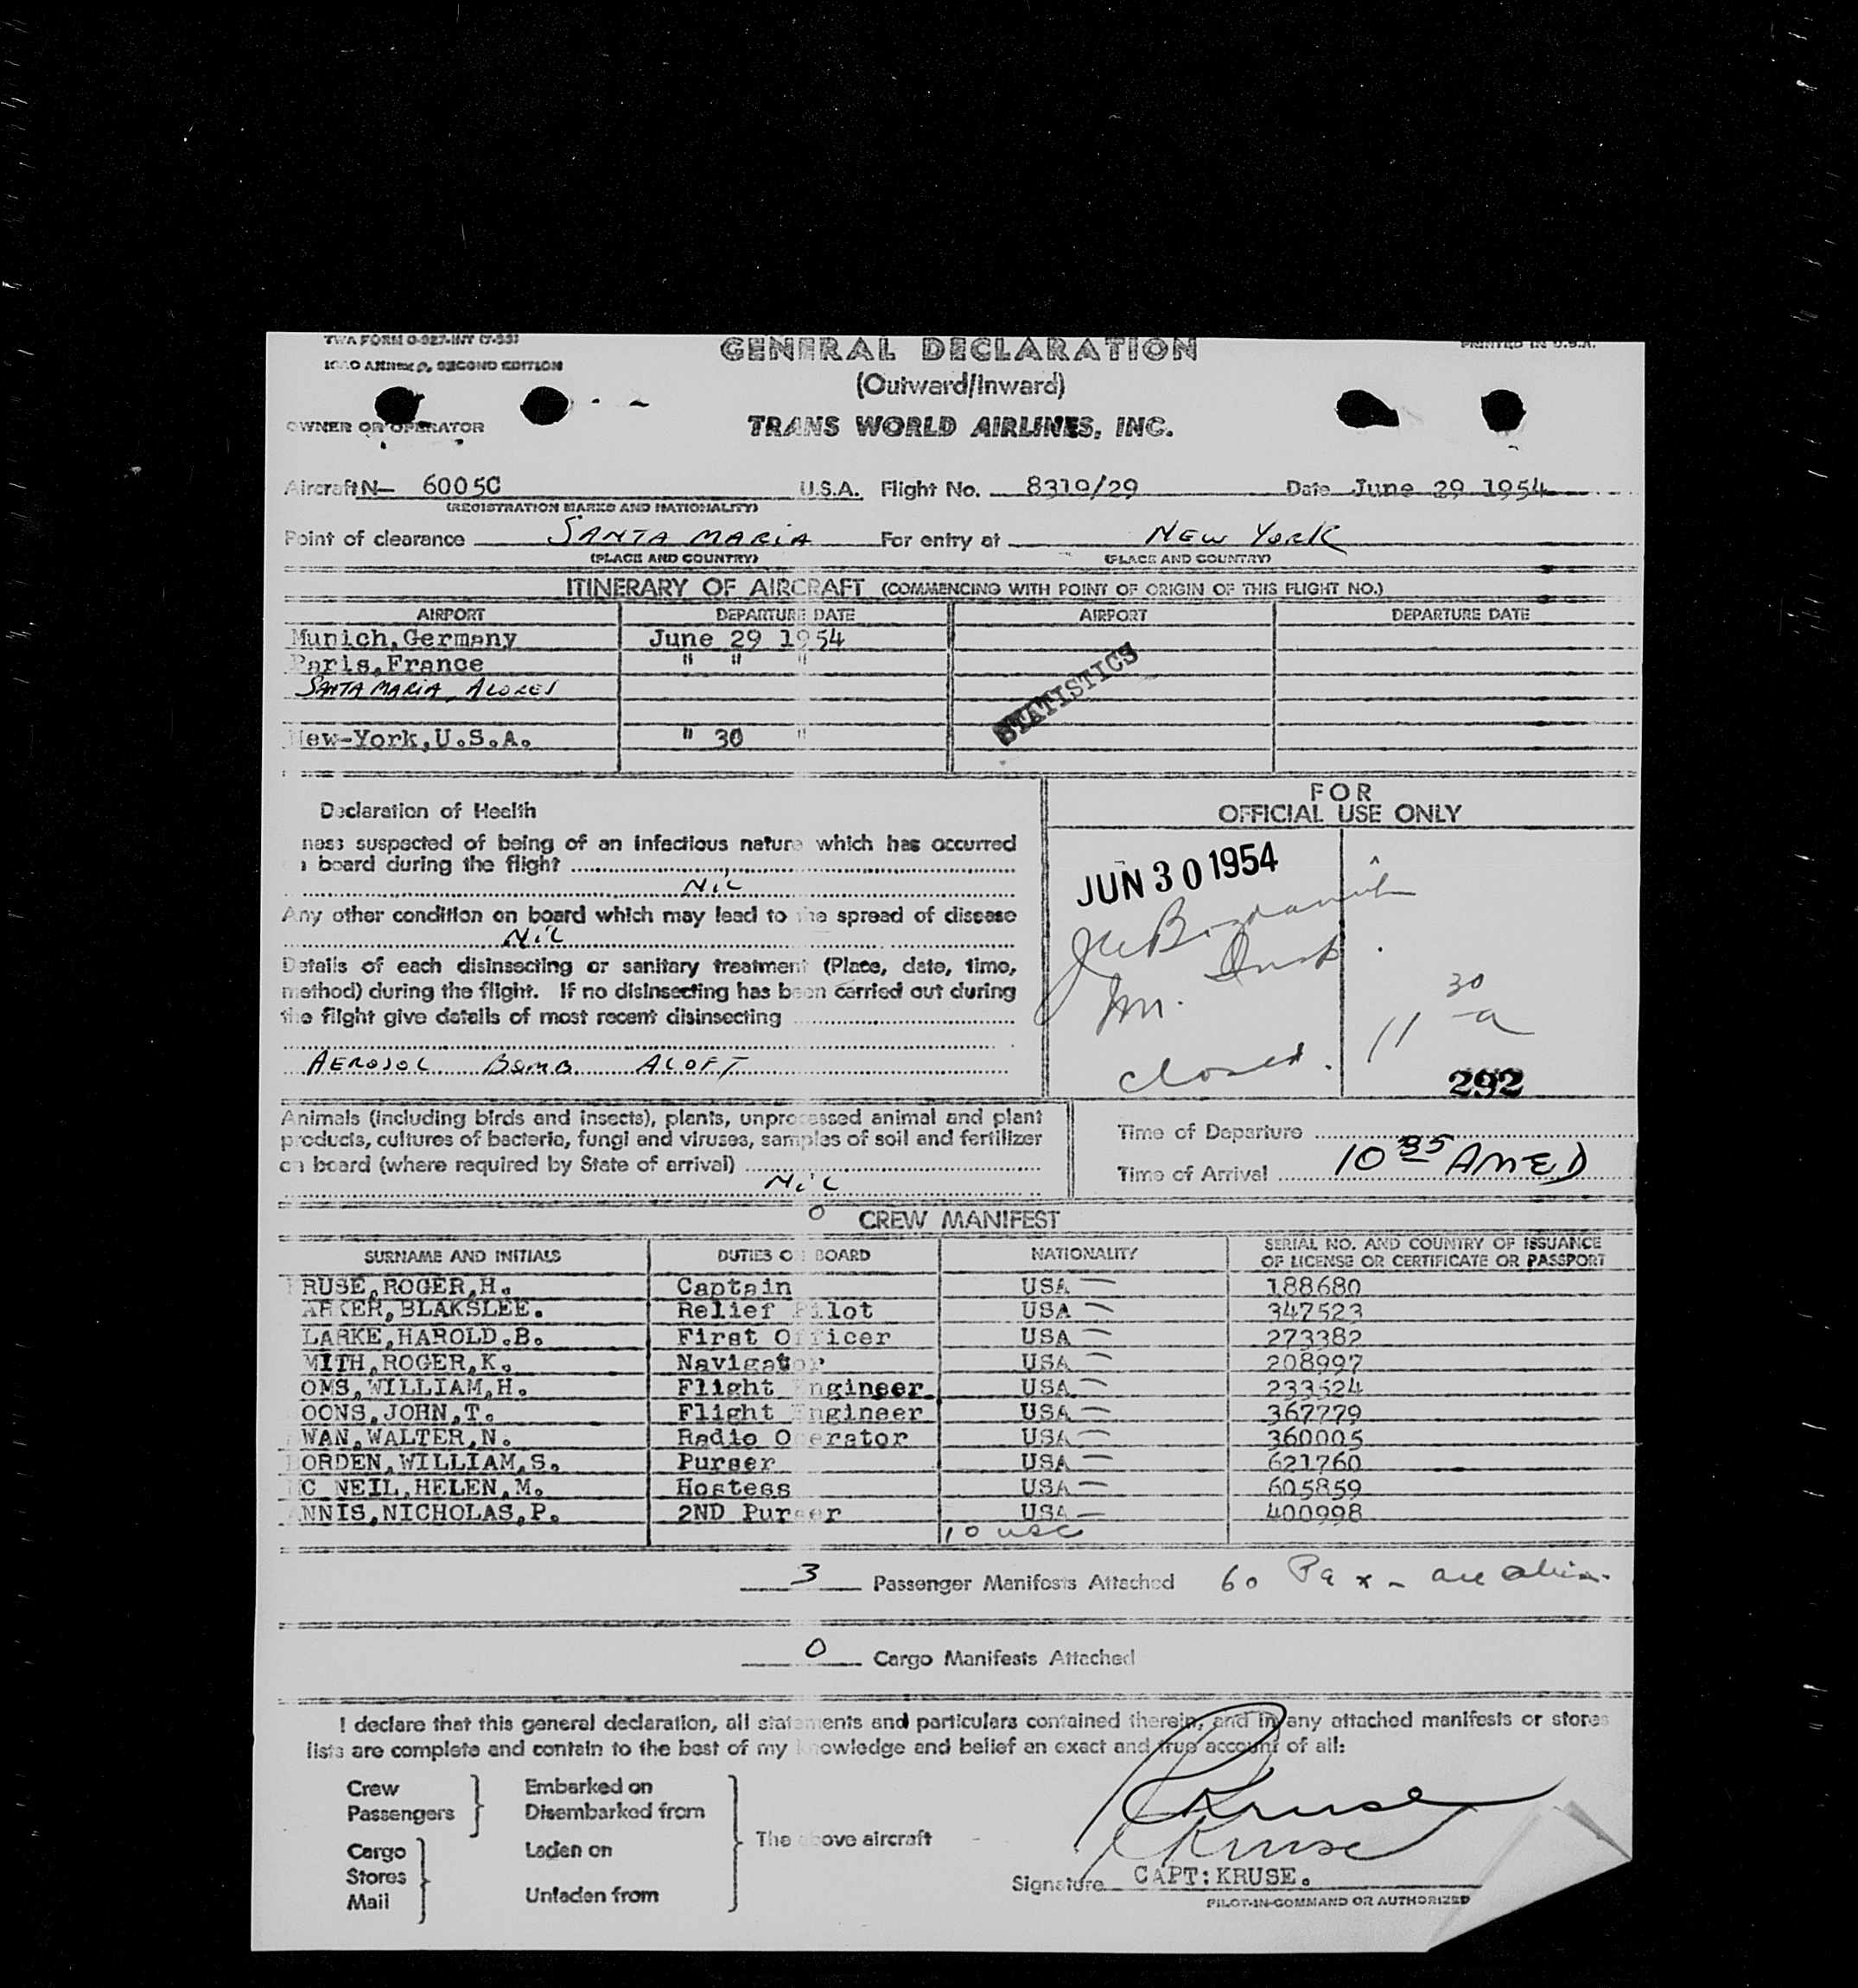 TWA FORM O-927-INT (7-53)
ICAO ANNEX 9, SECOND EDITION
PRINTED IN U.S.A.
GENERAL DECLARATION
(Outward/Inward)
OWNER OR OPERATOR
TRANS WORLD AIRLINES, INC.
Aircraft N- 6005C U.S.A. Flight No. 8319/29 Date June 29 1954
(REGISTRATION MARKS AND NATIONALITY)
Point of clearance SANTA MARIA For entry at NEW YORK
(PLACE AND COUNTRY) (PLACE AND COUNTRY)
ITINERARY OF AIRCRAFT (COMMENCING WITH POINT OF ORIGIN OF THIS FLIGHT NO.)
AIRPORT DEPARTURE DATE AIRPORT DEPARTURE DATE
Munich,Germany June 29 1954
Paris,France " " "
SANTA MARIA, AZORES
STATISTICS
New-York,U.S.A. " 30 "
Declaration of Health
FOR
OFFICIAL USE ONLY
ness suspected of being of an infectious nature which has occurred
board during the flight
Nil
JUN 30 1954
Any other condition on board which may lead to the spread of disease
Nil
Details of each disinsecting or sanitary treatment (Place, date, time,
method) during the flight. If no disinsecting has been carried out during
the flight give details of most recent disinsecting
AEROSOL BOMB ALOFT
Im.
closed. 11 30 a
292
Animals (including birds and insects), plants, unprocessed animal and plant
products, cultures of bacteria, fungi and viruses, samples of soil and fertilizer
on board (where required by State of arrival)
Nil
Time of Departure
Time of Arrival 10 35 AMED
0
CREW MANIFEST
SURNAME AND INITIALS DUTIES ON BOARD NATIONALITY SERIAL NO. AND COUNTRY OF ISSUANCE
OF LICENSE OR CERTIFICATE OR PASSPORT
RUSE,ROGER,H. Captain USA 188680
ARKER,BLAKSLEE. Relief Pilot USA 347523
LARKE,HAROLD.B. First Officer USA 273382
MITH,ROGER,K. Navigator USA 208997
OMS,WILLIAM,H. Flight Engineer USA 233524
OONS,JOHN,T. Flight Engineer USA 367779
WAN,WALTER,N. Radio Operator USA 360005
ORDEN,WILLIAM,S. Purser USA 621760
C NEIL,HELEN,M. Hostess USA 605859
NNIS,NICHOLAS,P. 2ND Purser USA 400998
10 usc
3 Passenger Manifests Attached 60 Pax - all
0 Cargo Manifests Attached
I declare that this general declaration, all statements and particulars contained therein, and in any attached manifests or stores
lists are complete and contain to the best of my knowledge and belief an exact and true account of all:
Crew
Passengers
Embarked on
Disembarked from
Cargo
Stores
Mail
Laden on
Unladen from
The above aircraft
RKruse
Kruse
Signature CAPT:KRUSE.
PILOT-IN-COMMAND OR AUTHORIZED